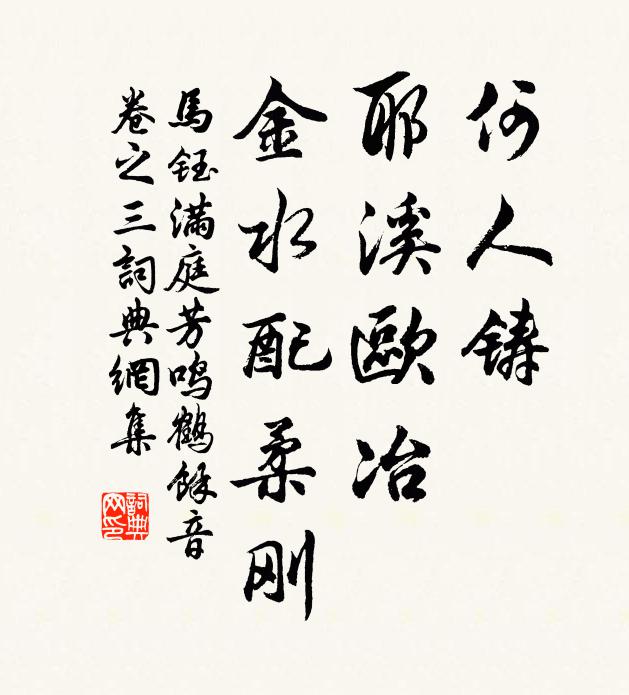 何人铸
耶溪歐冶
金水配柔刚
馬鈺满庭芳鸣鶴餘音
卷之三詞典網集
詞典
网印